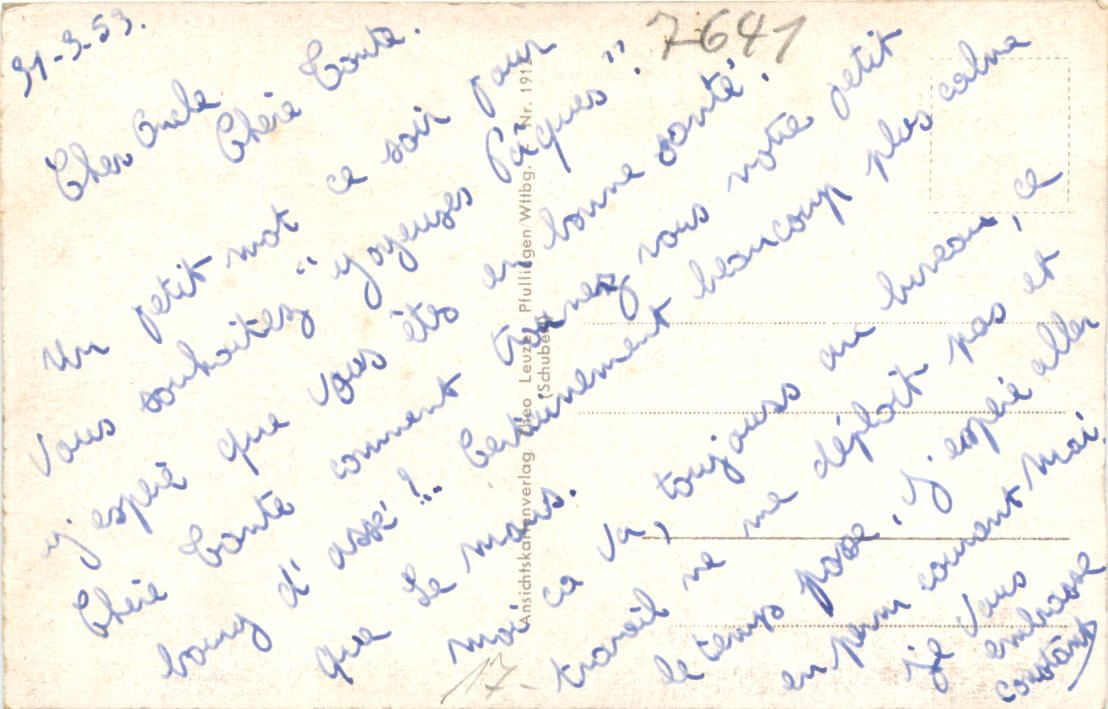 31-3-53.
7-641
Cher Oncle
Chère Tante.
Un petit mot ce soir pour
Vous souhaitez "yoyeuses Pâques".
j'espère que Vous êtes en bonne santé!
Chère Tante comment trouvez vous votre petit
bourg d'assé!.. Certainement beaucoup plus calme
que Le mans.
moi ca va, toujours au bureau, ce
travail ne me déplait pas et
le temps passe, j'espère aller
en perm courant mai.
je Vous
embrasse
constant
17-
Ansichtskartenverlag Theo Leuze Pfullingen Wttbg. Nr. 1912
(Schube